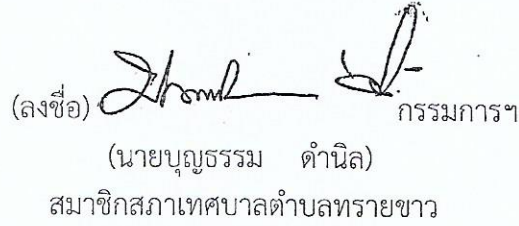 (ลงชื่อ) กรรมการฯ
(นายบุญธรรม ดำนิล)
สมาชิกสภาเทศบาลตำบลทรายขาว